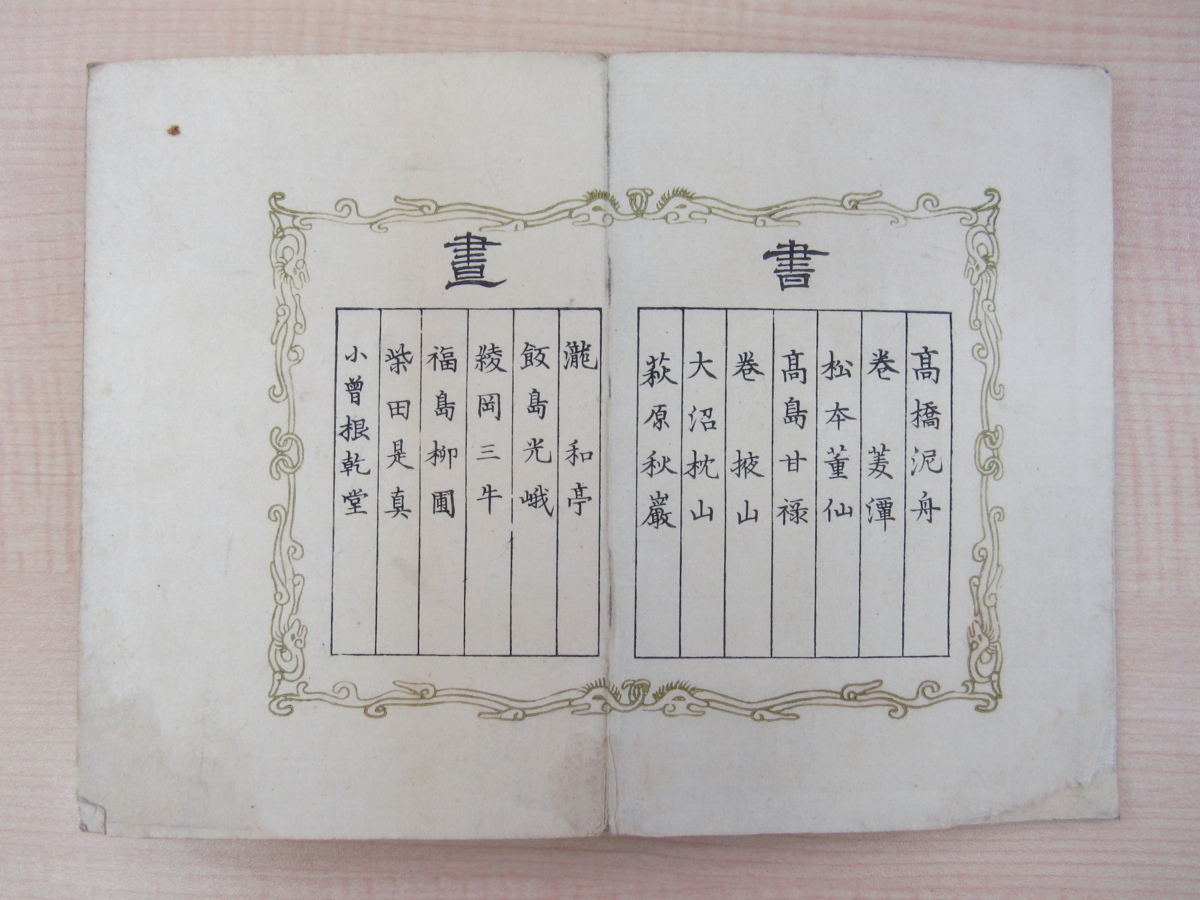 書
高橋泥舟
巻菱潭
松本董仙
髙島甘祿
巻掖山
大沼枕山
萩原秋巖
畫
瀧和亭
飯島光峨
綾岡三牛
福島柳圃
柴田是真
小曾根乾堂